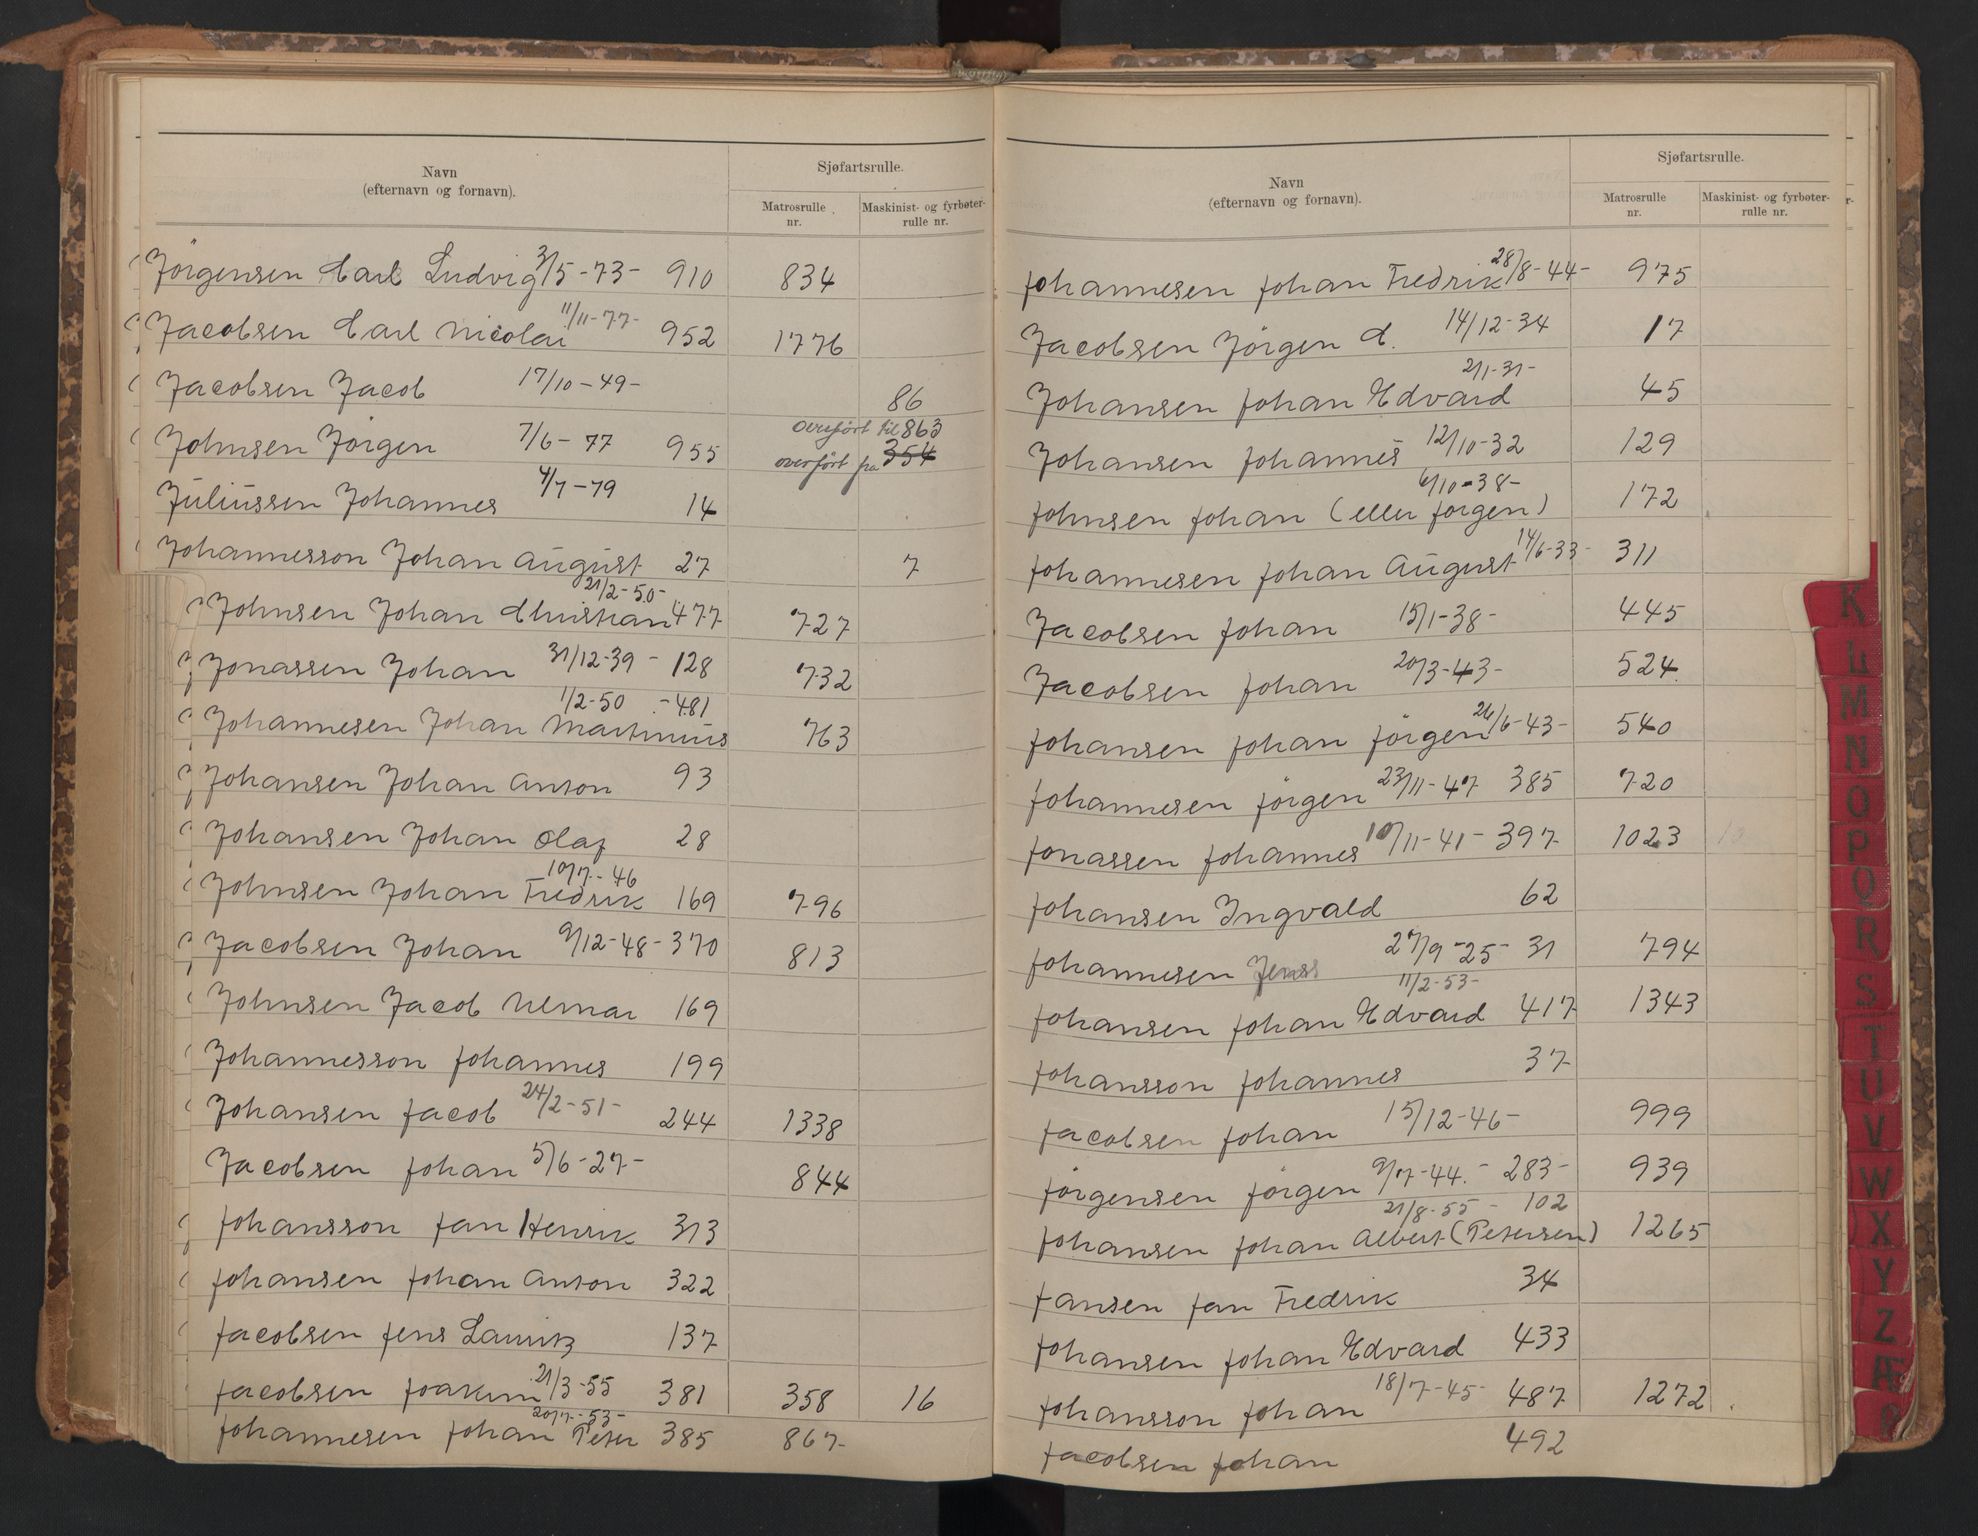 Navn
(efternavn og fornavn).
Sjøfartsrulle.
Matrosrulle nr.
Maskinist- og fyrbøter-rulle nr.
Jörgensen Carl Ludvig 3/5-73- 910 834
Jacobsen Carl Nicolai 11/11-77- 952 1776
Jacobsen Jacob 17/10-49- 86
overført til 863
Johnsen Jörgen 7/6-77 955 overført fra 354
Juliussen Johannes 4/7-79 14
Johannesson Johan August 27 7
Johnsen Johan Christian 21/2-50- 477 727
Jonassen Johan 31/12-39- 128 732
Johannesen Johan Martinius 1/2-50 -481 763
Johansen Johan Anton 93
Johansen Johan Olaf 28
Johnsen Johan Fredrik 10/7-46 169 796
Jacobsen Johan 9/12-48- 370 813
Johnsen Jacob 169
Johannesson Johannes 199
Johansen Jacob 24/2-51- 244 1338
Jacobsen Johan 5/6-27- 844
Johansson Jan Henrik 313
Johansen Johan Anton 322
Jacobsen Jens Lauritz 137
Jacobsen Joakim 21/3-55 381 358 16
Johannesen Johan Peter 20/7-53- 385 867
Navn
(efternavn og fornavn).
Sjøfartsrulle.
Matrosrulle nr.
Maskinist- og fyrbøter-rulle nr.
Johannesen Johan Fredrik 28/8-44- 975
Jacobsen Jörgen C. 14/12-34 17
Johansen Johan Edvard 2/1-31- 45
Johansen Johannes 12/10-32 129
Johnsen Johan (eller Jørgen) 6/10-38- 172
Johannesen Johan August 14/6-33- 311
Jacobsen Johan 15/1-38- 445
Jacobsen Johan 20/3-43- 524
Johansen Johan Jörgen 26/6-43- 540
Johannesen Jörgen 23/11-47 385 720
Jonassen Johannes 10/11-41- 397 1023
Johansen Ingvald 62
Johannesen Jens 27/9-25- 31 794
Johansen Johan Edvard 11/2-53- 417 1343
Johansson Johannes 37
Jacobsen Johan 15/12-46- 999
Jörgensen Jörgen 9/7-44.- 283- 939
Johansen Johan Albert (Petersen) 21/8-55- 102 1265
Jansen Jan Fredrik 34
Johansen Johan Edvard 433
Johansson Johan 18/7-45- 487 1272
Jacobsen Johan 492
K
L
M
N
O
P
Q
R
S
T
U
V
W
X
Y
Z
Æ
Ø